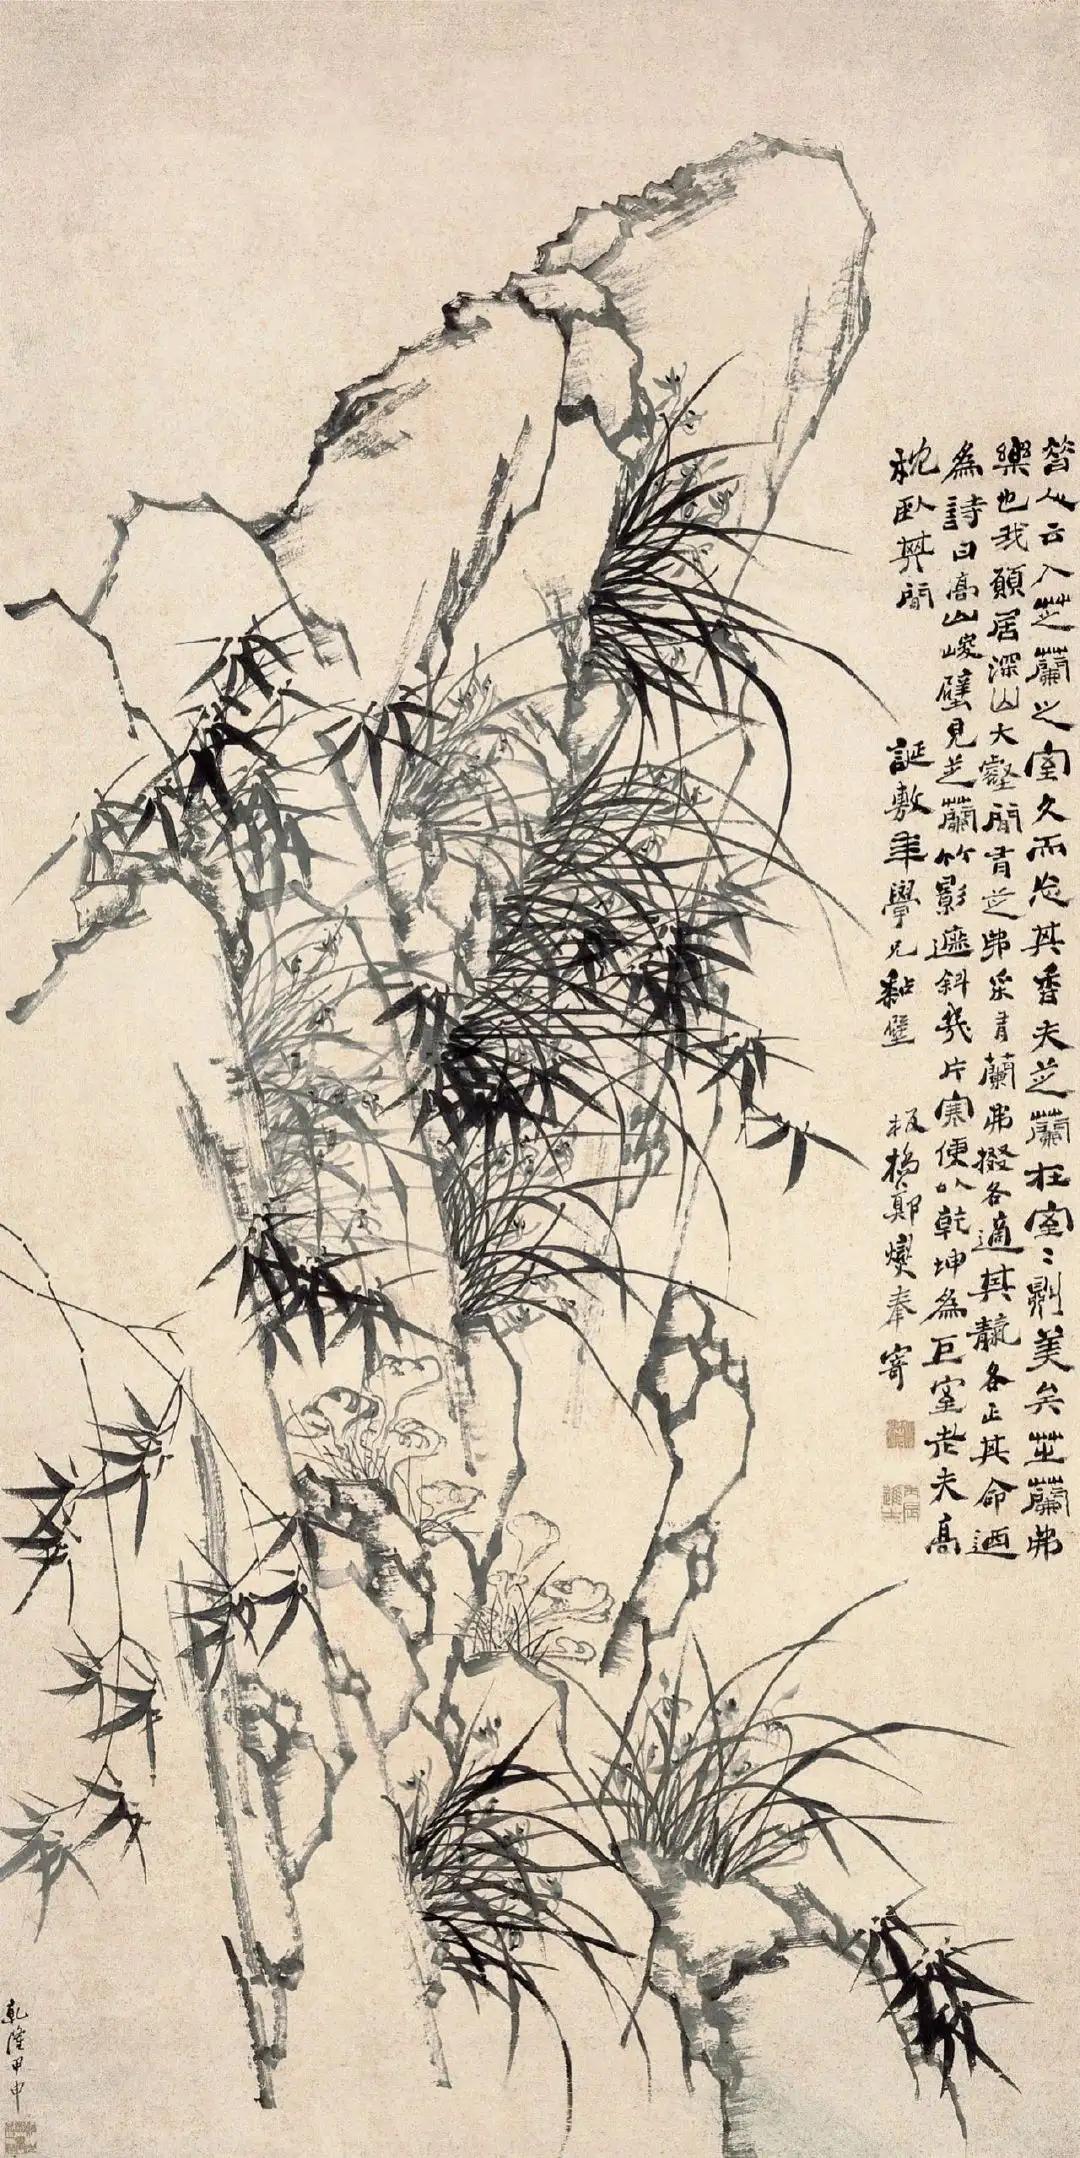 昝人云入芝蘭之室久而忘其香夫芝蘭在室室則美矣芝蘭弗
樂也我願居深山大壑間有芝弗采有蘭弗掇各適其天各正其命迺
為詩曰高山峻壁見芝蘭竹影遮斜幾片寒便以乾坤為巨室老夫高
枕臥其間
誕敷年學兄黏壁
板橋鄭燮奉寄
丙辰進士
乾隆甲申